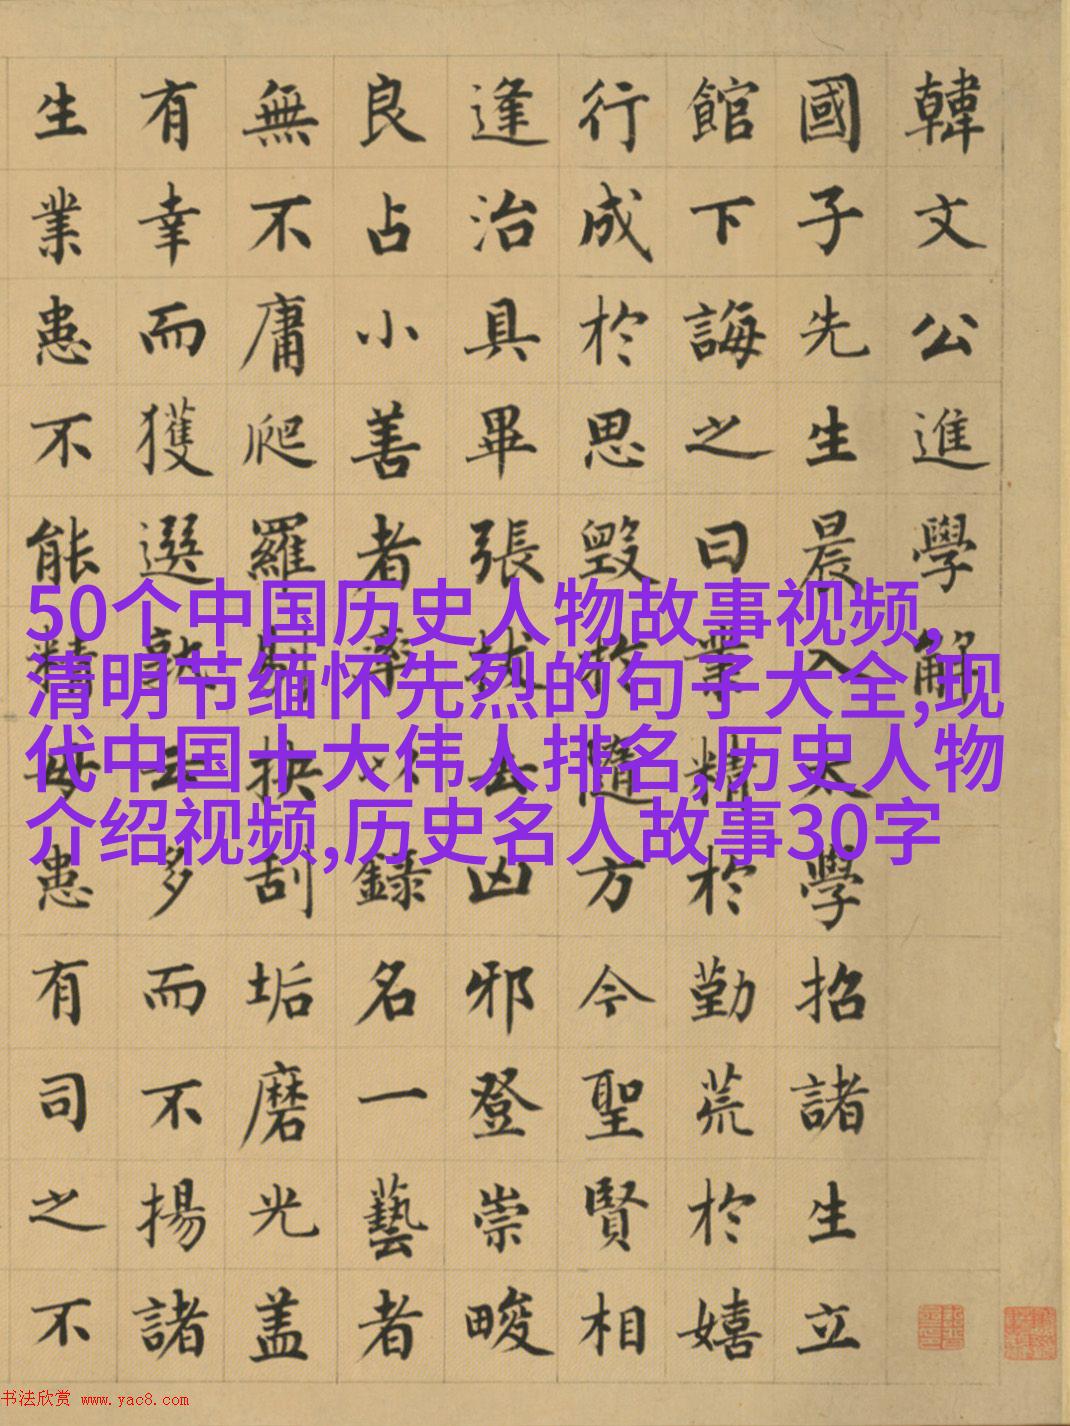 韓文公進學解
國子先生晨入太學招諸生立
館下誨之曰業精於勤荒於嬉
行成於思毀於隨方今聖賢相
逢治具畢張拔去凶邪登崇畯
良占小善者率以錄名一藝者
無不庸爬羅剔抉刮垢磨光盖
有幸而獲選孰云多而不揚諸
生業患不能精毋患有司之不
50个中国历史人物故事视频,
清明节缅怀先烈的句子大全,现
代中国十大伟人排名,历史人物
介绍视频,历史名人故事30字
书法欣赏 www.yac8.com